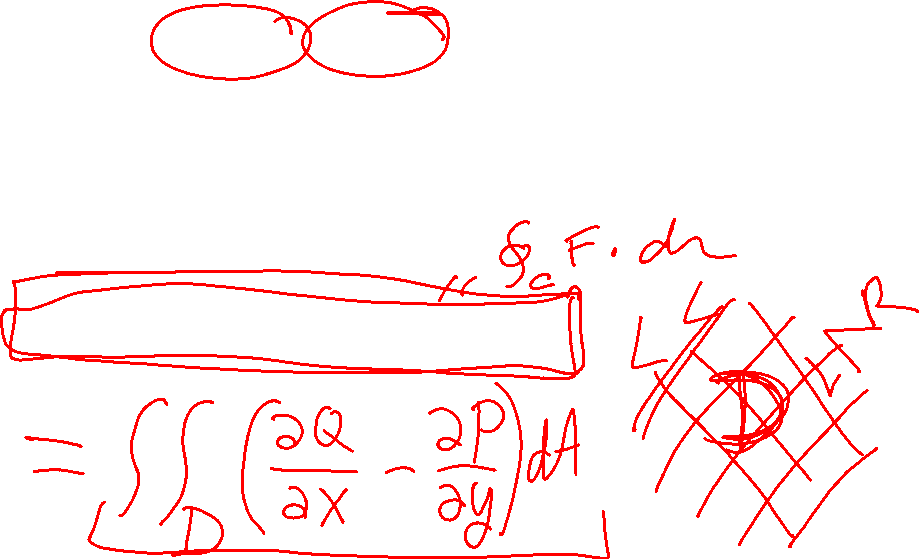 ∮_C F · dr
= ∬_D (∂Q/∂x − ∂P/∂y) dA
D